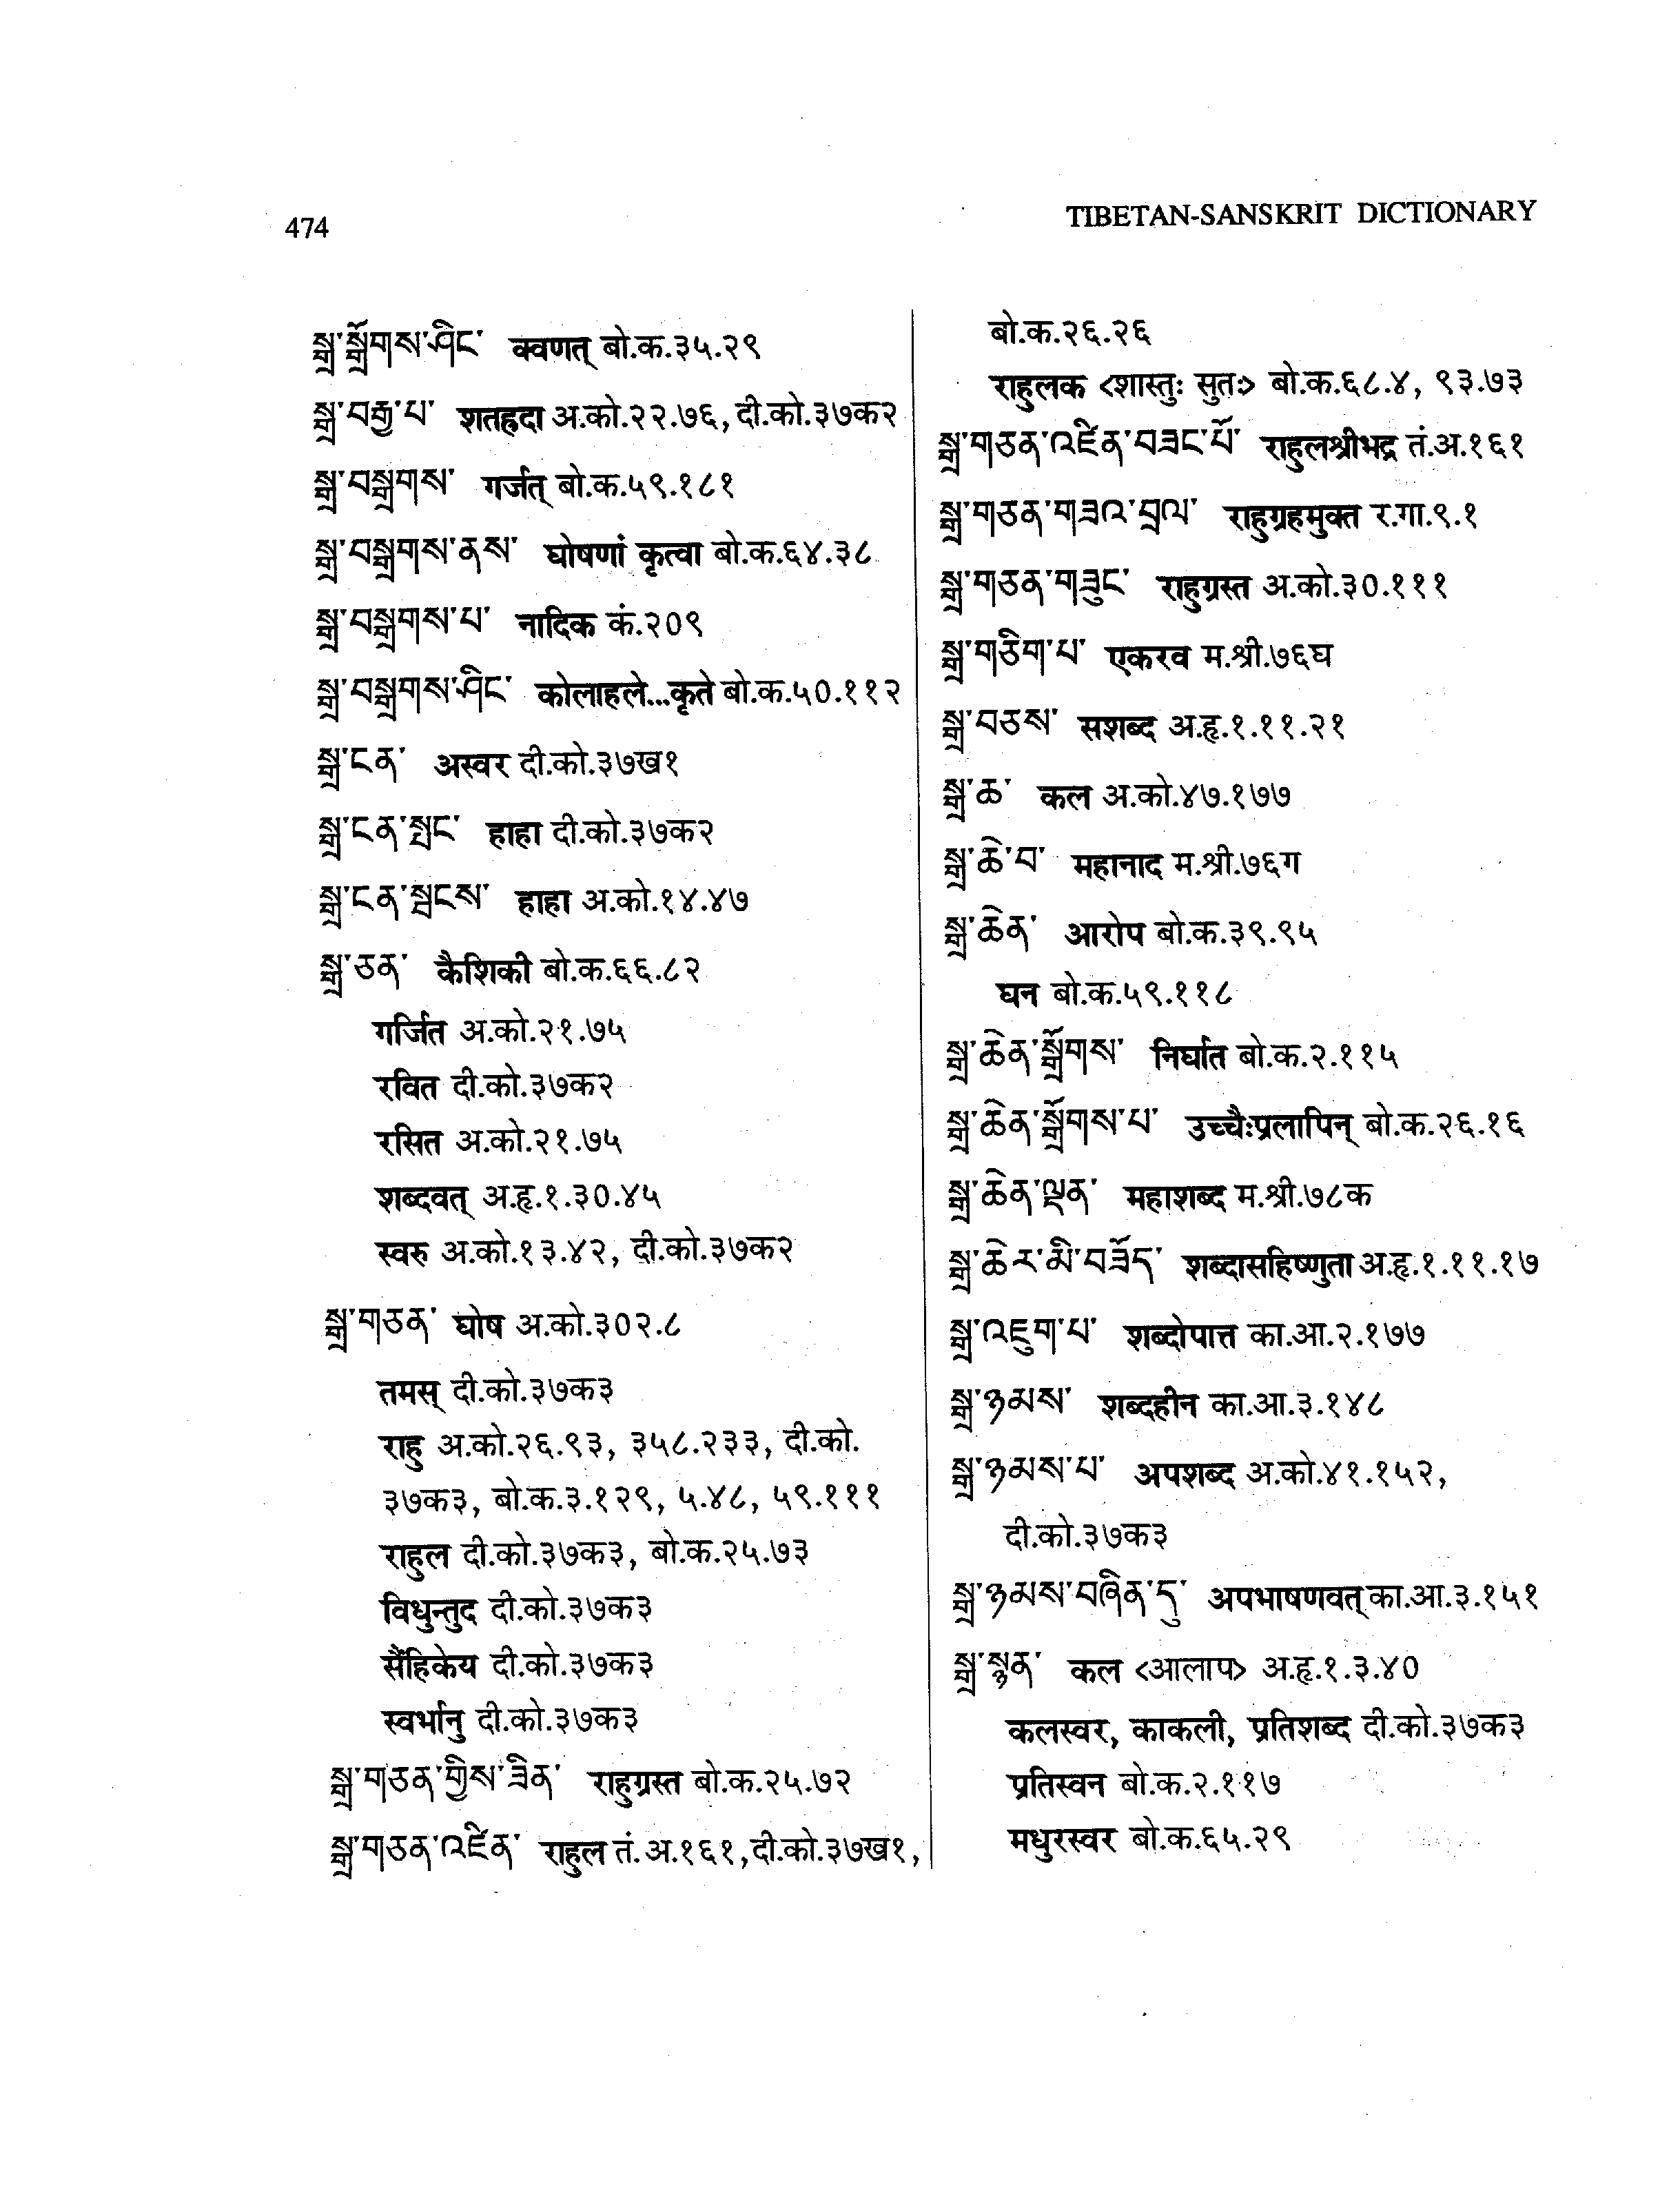 474
TIBETAN-SANSKRIT DICTIONARY
སྒྲ་སྒྲོགས་ཤིང་ क्वणत् बो.क.३५.२९
སྒྲ་བརྒྱ་པ་ शतह्रदा अ.को.२२.७६, दी.को.३७क२
སྒྲ་བསྒྲགས་ गर्जत् बो.क.५९.१८१
སྒྲ་བསྒྲགས་ནས་ घोषणां कृत्वा बो.क.६४.३८
སྒྲ་བསྒྲགས་པ་ नादिक कं.२०९
སྒྲ་བསྒྲགས་ཤིང་ कोलाहले...कृते बो.क.५०.११२
སྒྲ་ངན་ अस्वर दी.को.३७ख१
སྒྲ་ངན་སྤྲང་ हाहा दी.को.३७क२
སྒྲ་ངན་སྦྲངས་ हाहा अ.को.१४.४७
སྒྲ་ཅན་ कैशिकी बो.क.६६.८२
गर्जित अ.को.२१.७५
रवित दी.को.३७क२
रसित अ.को.२१.७५
शब्दवत् अ.हृ.१.३०.४५
स्वरु अ.को.१३.४२, दी.को.३७क२
སྒྲ་གཅན་ घोष अ.को.३०२.८
तमस् दी.को.३७क३
राहु अ.को.२६.९३, ३५८.२३३, दी.को.
३७क३, बो.क.३.१२९, ५.४८, ५९.१११
राहुल दी.को.३७क३, बो.क.२५.७३
विधुन्तुद दी.को.३७क३
सैंहिकेय दी.को.३७क३
स्वर्भानु दी.को.३७क३
སྒྲ་གཅན་གྱིས་ཟིན་ राहुग्रस्त बो.क.२५.७२
སྒྲ་གཅན་འཛིན་ राहुल तं.अ.१६१,दी.को.३७ख१,
बो.क.२६.२६
राहुलक <शास्तुः सुतः> बो.क.६८.४, ९३.७३
སྒྲ་གཅན་འཛིན་བཟང་པོ་ राहुलश्रीभद्र तं.अ.१६१
སྒྲ་གཅན་གཟའ་བྲལ་ राहुग्रहमुक्त र.गा.९.१
སྒྲ་གཅན་གཟུང་ राहुग्रस्त अ.को.३०.१११
སྒྲ་གཅིག་པ་ एकरव म.श्री.७६घ
སྒྲ་བཅས་ सशब्द अ.हृ.१.११.२१
སྒྲ་ཆ་ कल अ.को.४७.१७७
སྒྲ་ཆེ་བ་ महानाद म.श्री.७६ग
སྒྲ་ཆེན་ आरोप बो.क.३९.९५
घन बो.क.५९.११८
སྒྲ་ཆེན་སྒྲོགས་ निर्घात बो.क.२.११५
སྒྲ་ཆེན་སྒྲོགས་པ་ उच्चैःप्रलापिन् बो.क.२६.१६
སྒྲ་ཆེན་ལྡན་ महाशब्द म.श्री.७८क
སྒྲ་ཆེར་མི་བཟོད་ शब्दासहिष्णुता अ.हृ.१.११.१७
སྒྲ་འཇུག་པ་ शब्दोपात्त का.आ.२.१७७
སྒྲ་ཉམས་ शब्दहीन का.आ.३.१४८
སྒྲ་ཉམས་པ་ अपशब्द अ.को.४१.१५२,
दी.को.३७क३
སྒྲ་ཉམས་བཞིན་དུ་ अपभाषणवत् का.आ.३.१५१
སྒྲ་སྙན་ कल <आलाप> अ.हृ.१.३.४०
कलस्वर, काकली, प्रतिशब्द दी.को.३७क३
प्रतिस्वन बो.क.२.११७
मधुरस्वर बो.क.६५.२९